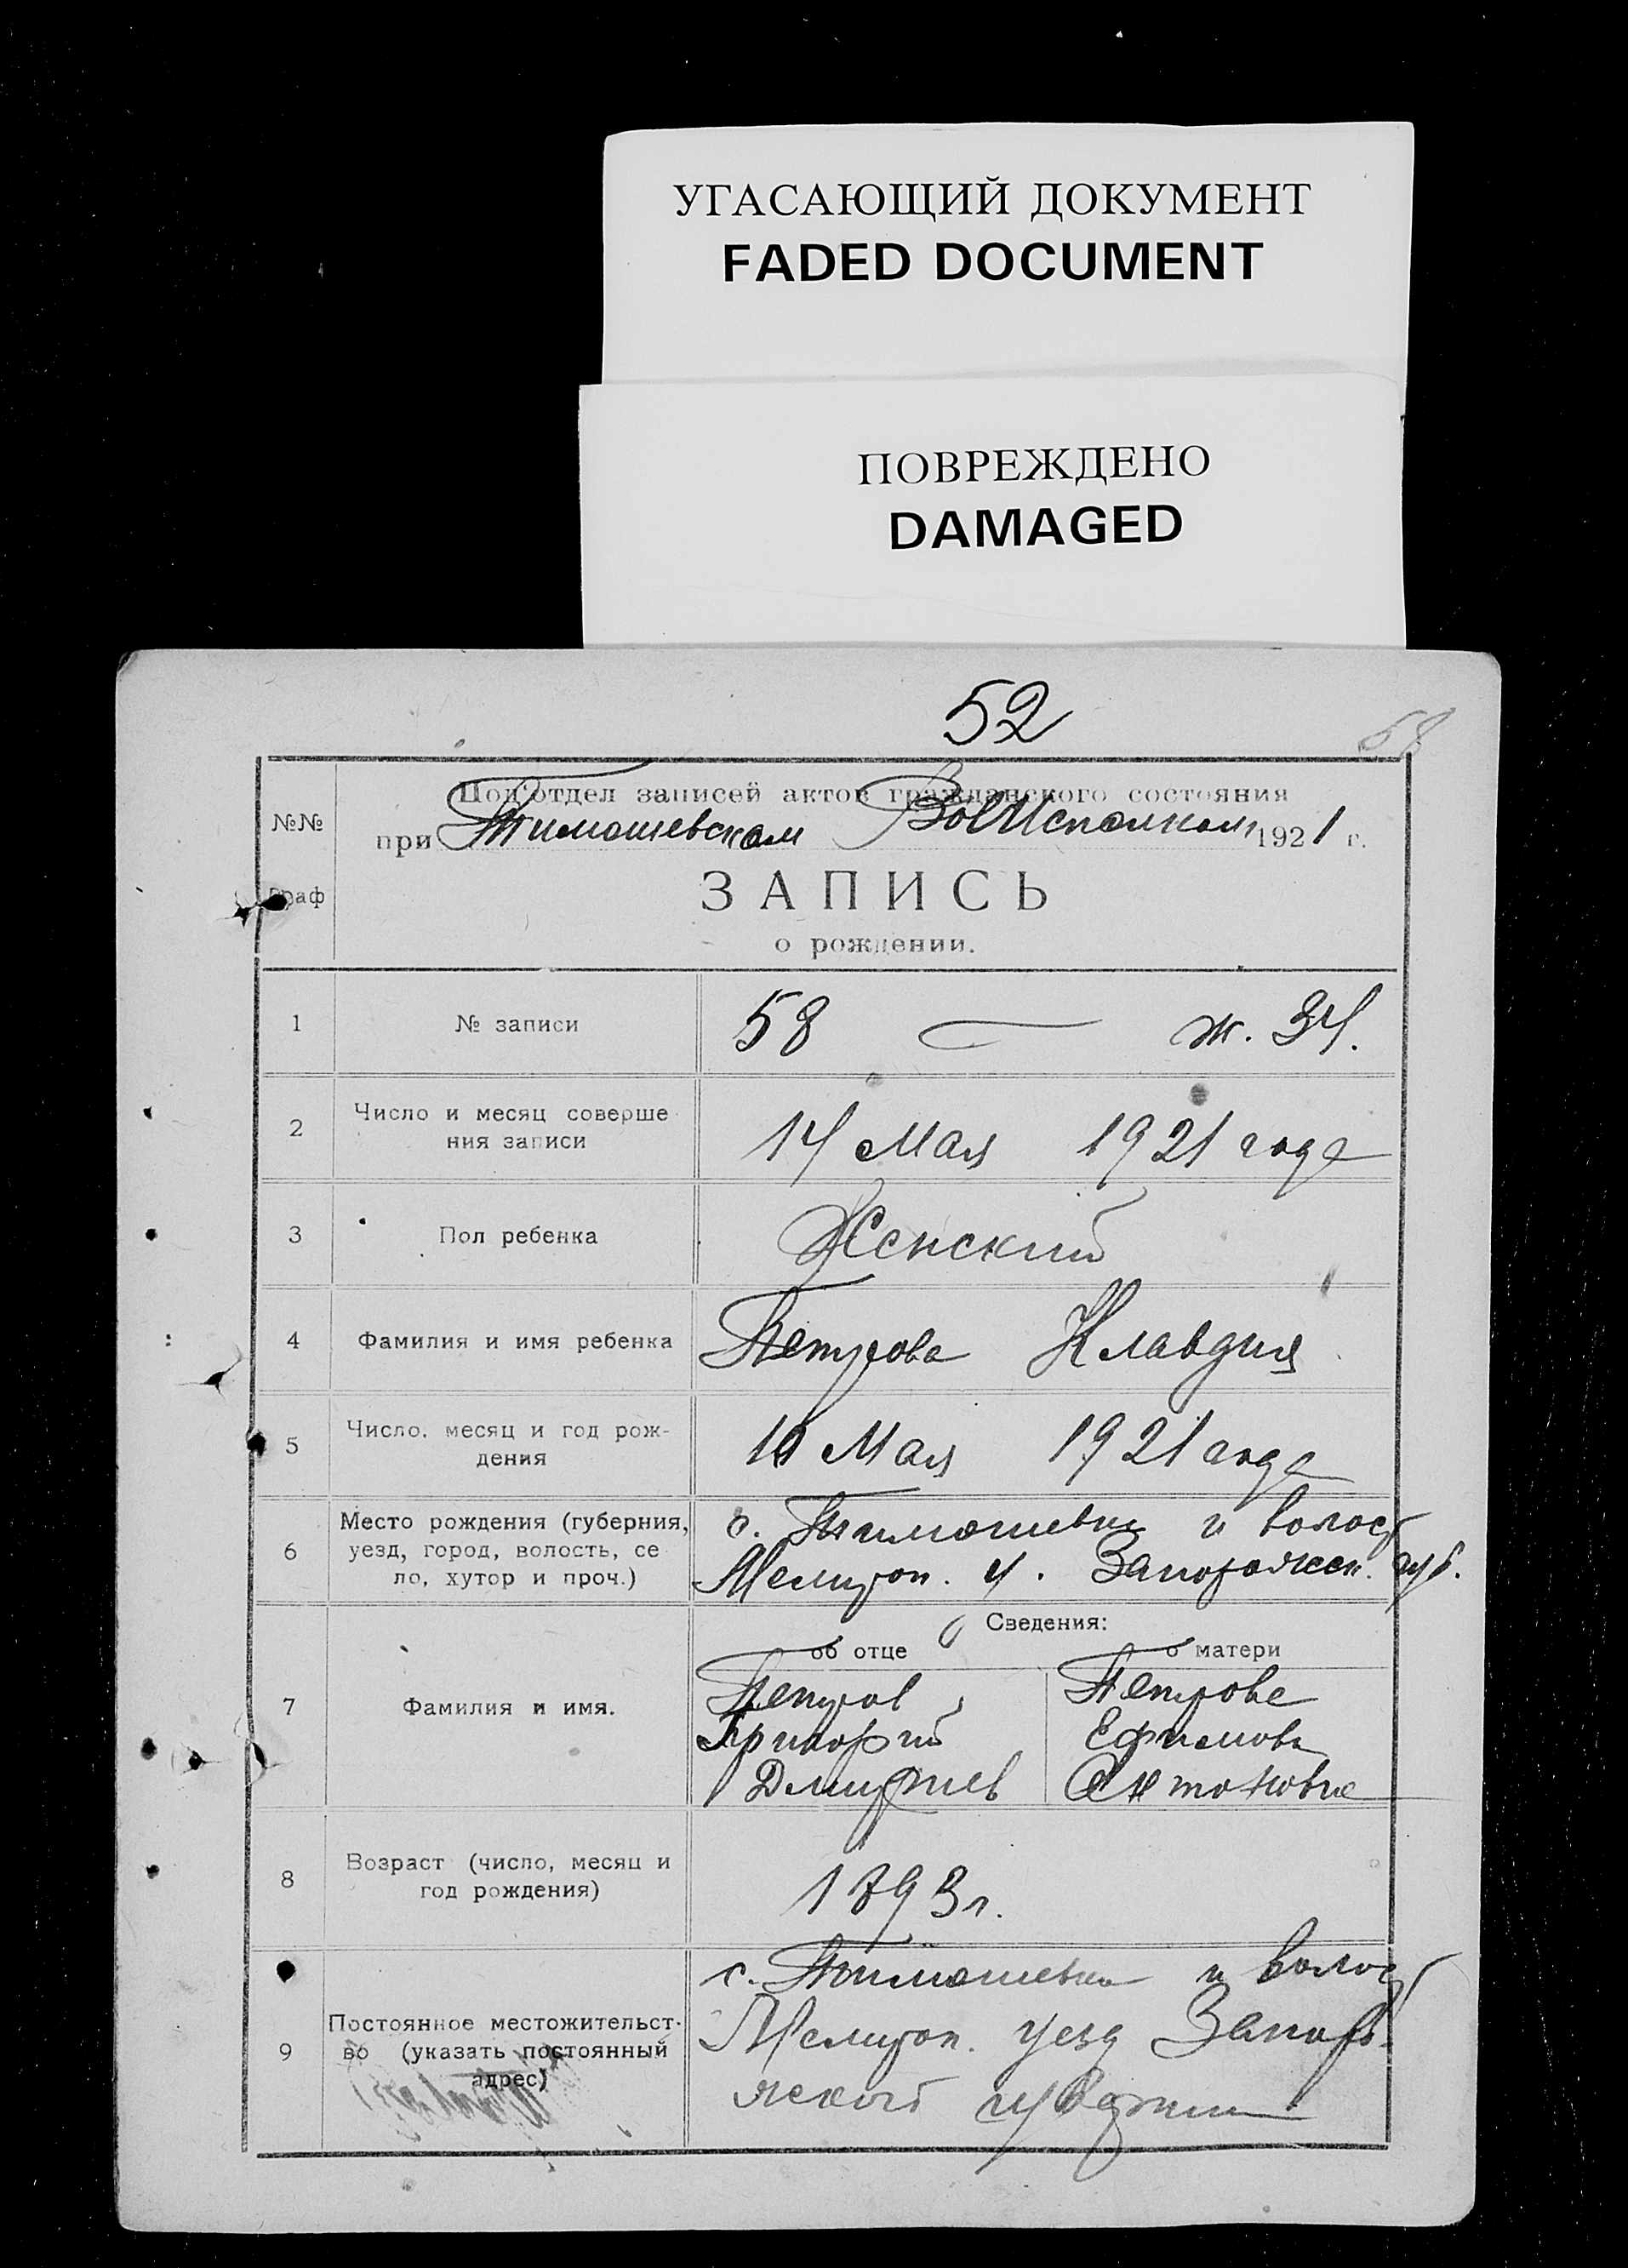 УГАСАЮЩИЙ ДОКУМЕНТ
FADED DOCUMENT
ПОВРЕЖДЕНО
DAMAGED
52
58
№№
граф
Под'отдел записей актов гражданского состояния
при Тимошевском ВолИсполком 1921 г.
ЗАПИСЬ
о рождении.
1 № записи 58 ж. 34.
2 Число и месяц соверше
ния записи 14 Мая 1921 года
3 Пол ребенка Женский
4 Фамилия и имя ребенка Петрова Клавдия
5 Число, месяц и год рож-
дения 10 Мая 1921 года
6 Место рождения (губерния,
уезд, город, волость, се
ло, хутор и проч.)
с. Тимошевка и волост
Мелитоп. у. Запорожск. губ.
Сведения:
об отце о матери
7 Фамилия и имя.
Петров Петрова
Григорий Ефимова
Дмитриев Антоновна
8 Возраст (число, месяц и
год рождения) 1893 г.
9 Постоянное местожительст-
во (указать постоянный
адрес)
с. Тимошевка и волост
Мелитоп. уезд Запоро-
жской губернии